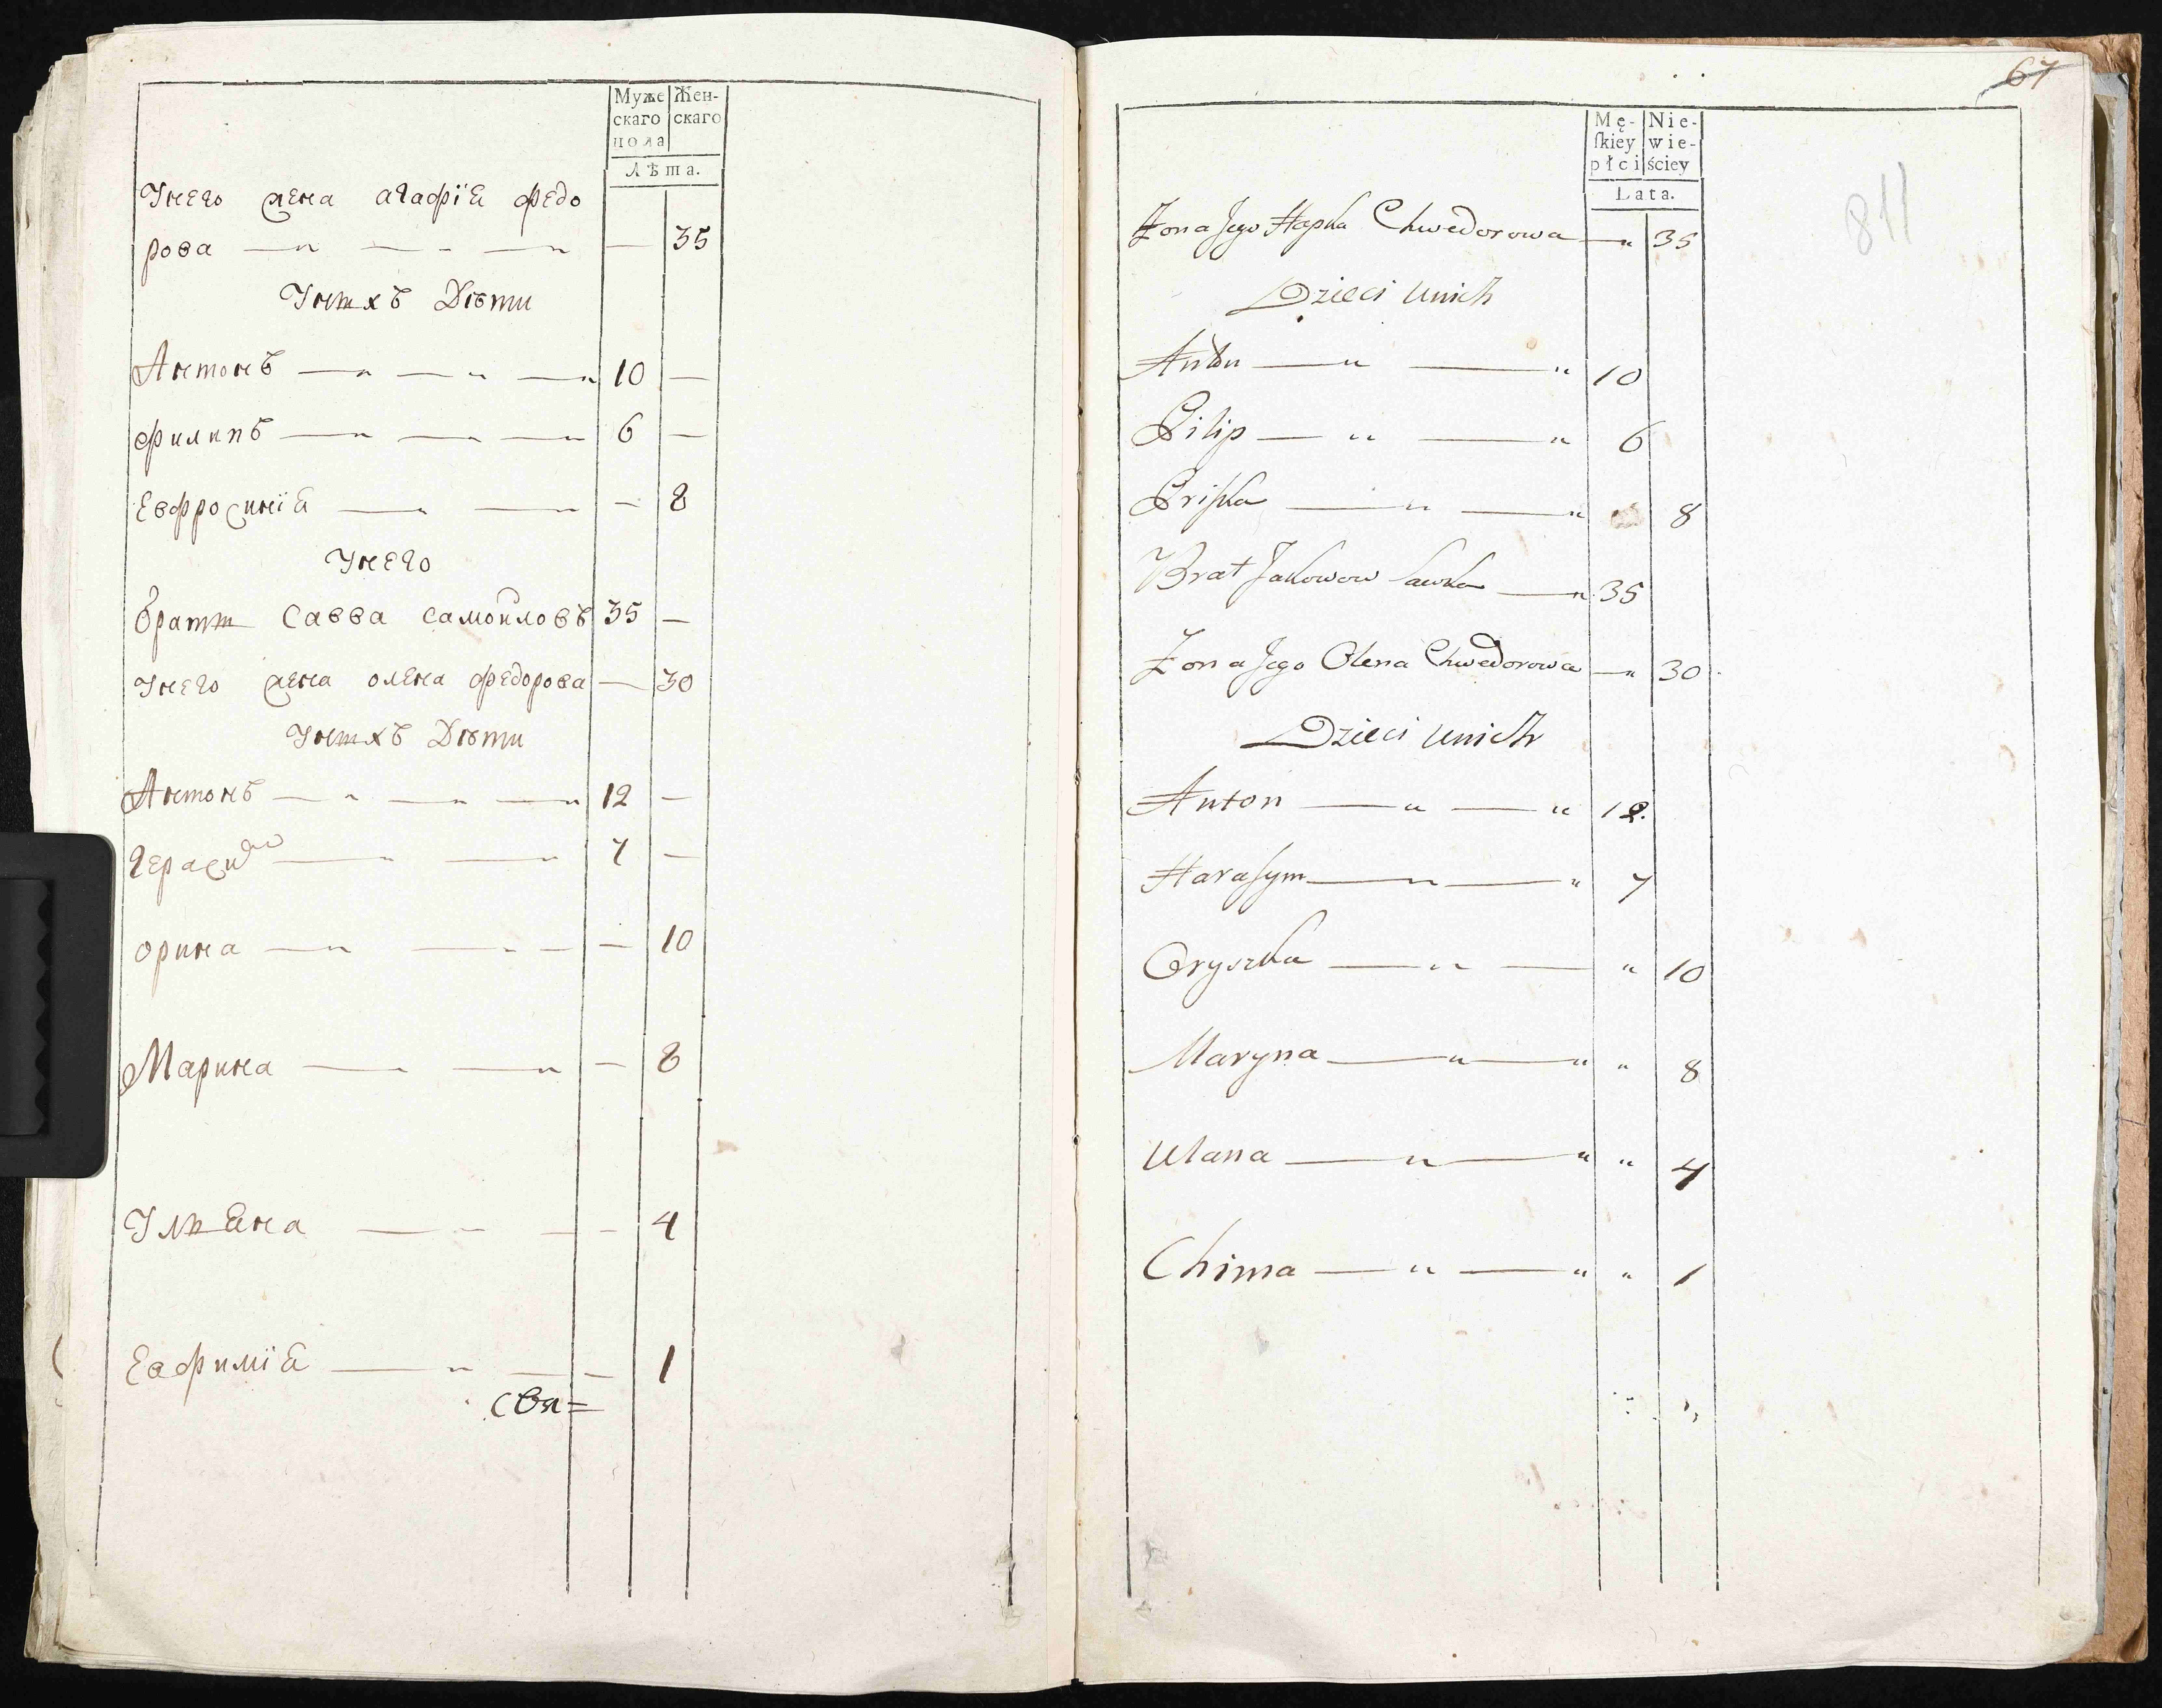 Муже
скаго
пола
Жен-
скаго
Лѣта.
Унего жена агафїя федо
рова — 35
Унихъ Дѣти
Антонъ 10 —
филипъ 6 —
Евфросинїя — 8
Унего
братъ савва самойловъ 35 —
Унего жена олена федорова — 30
Унихъ Дѣти
Антонъ 12 —
герасим 7 —
орина — 10
Марина — 8
Ульяна — 4
Еафимїя — 1
67
811
Mę-
ſkiey
płci
Nie-
wie-
ściey
Lata.
Żona Jego Hapka Chwedorowa „ 35
Dzieci unich
Anton 10
Pilip 6
Priſka „ 8
Brat Jakowow Sawka 35
Żona Jego Olena Chwedorowa „ 30
Dzieci unich
Anton 12.
Haraſym 7
Oryszka „ 10
Maryna „ 8
Ulana „ 4
Chima „ 1